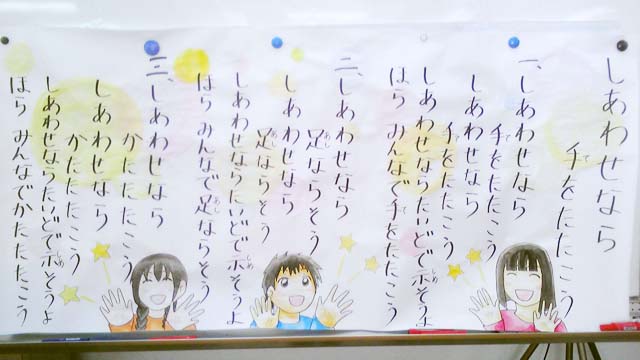 しあわせなら
手をたたこう
一、しあわせなら
手をたたこう
しあわせなら
手をたたこう
しあわせならたいどで示そうよ
ほら みんなで手をたたこう
二、しあわせなら
足ならそう
しあわせなら
足ならそう
しあわせならたいどで示そうよ
ほら みんなで足ならそう
三、しあわせなら
かたたたこう
しあわせなら
かたたたこう
しあわせならたいどで示そうよ
ほら みんなでかたたたこう